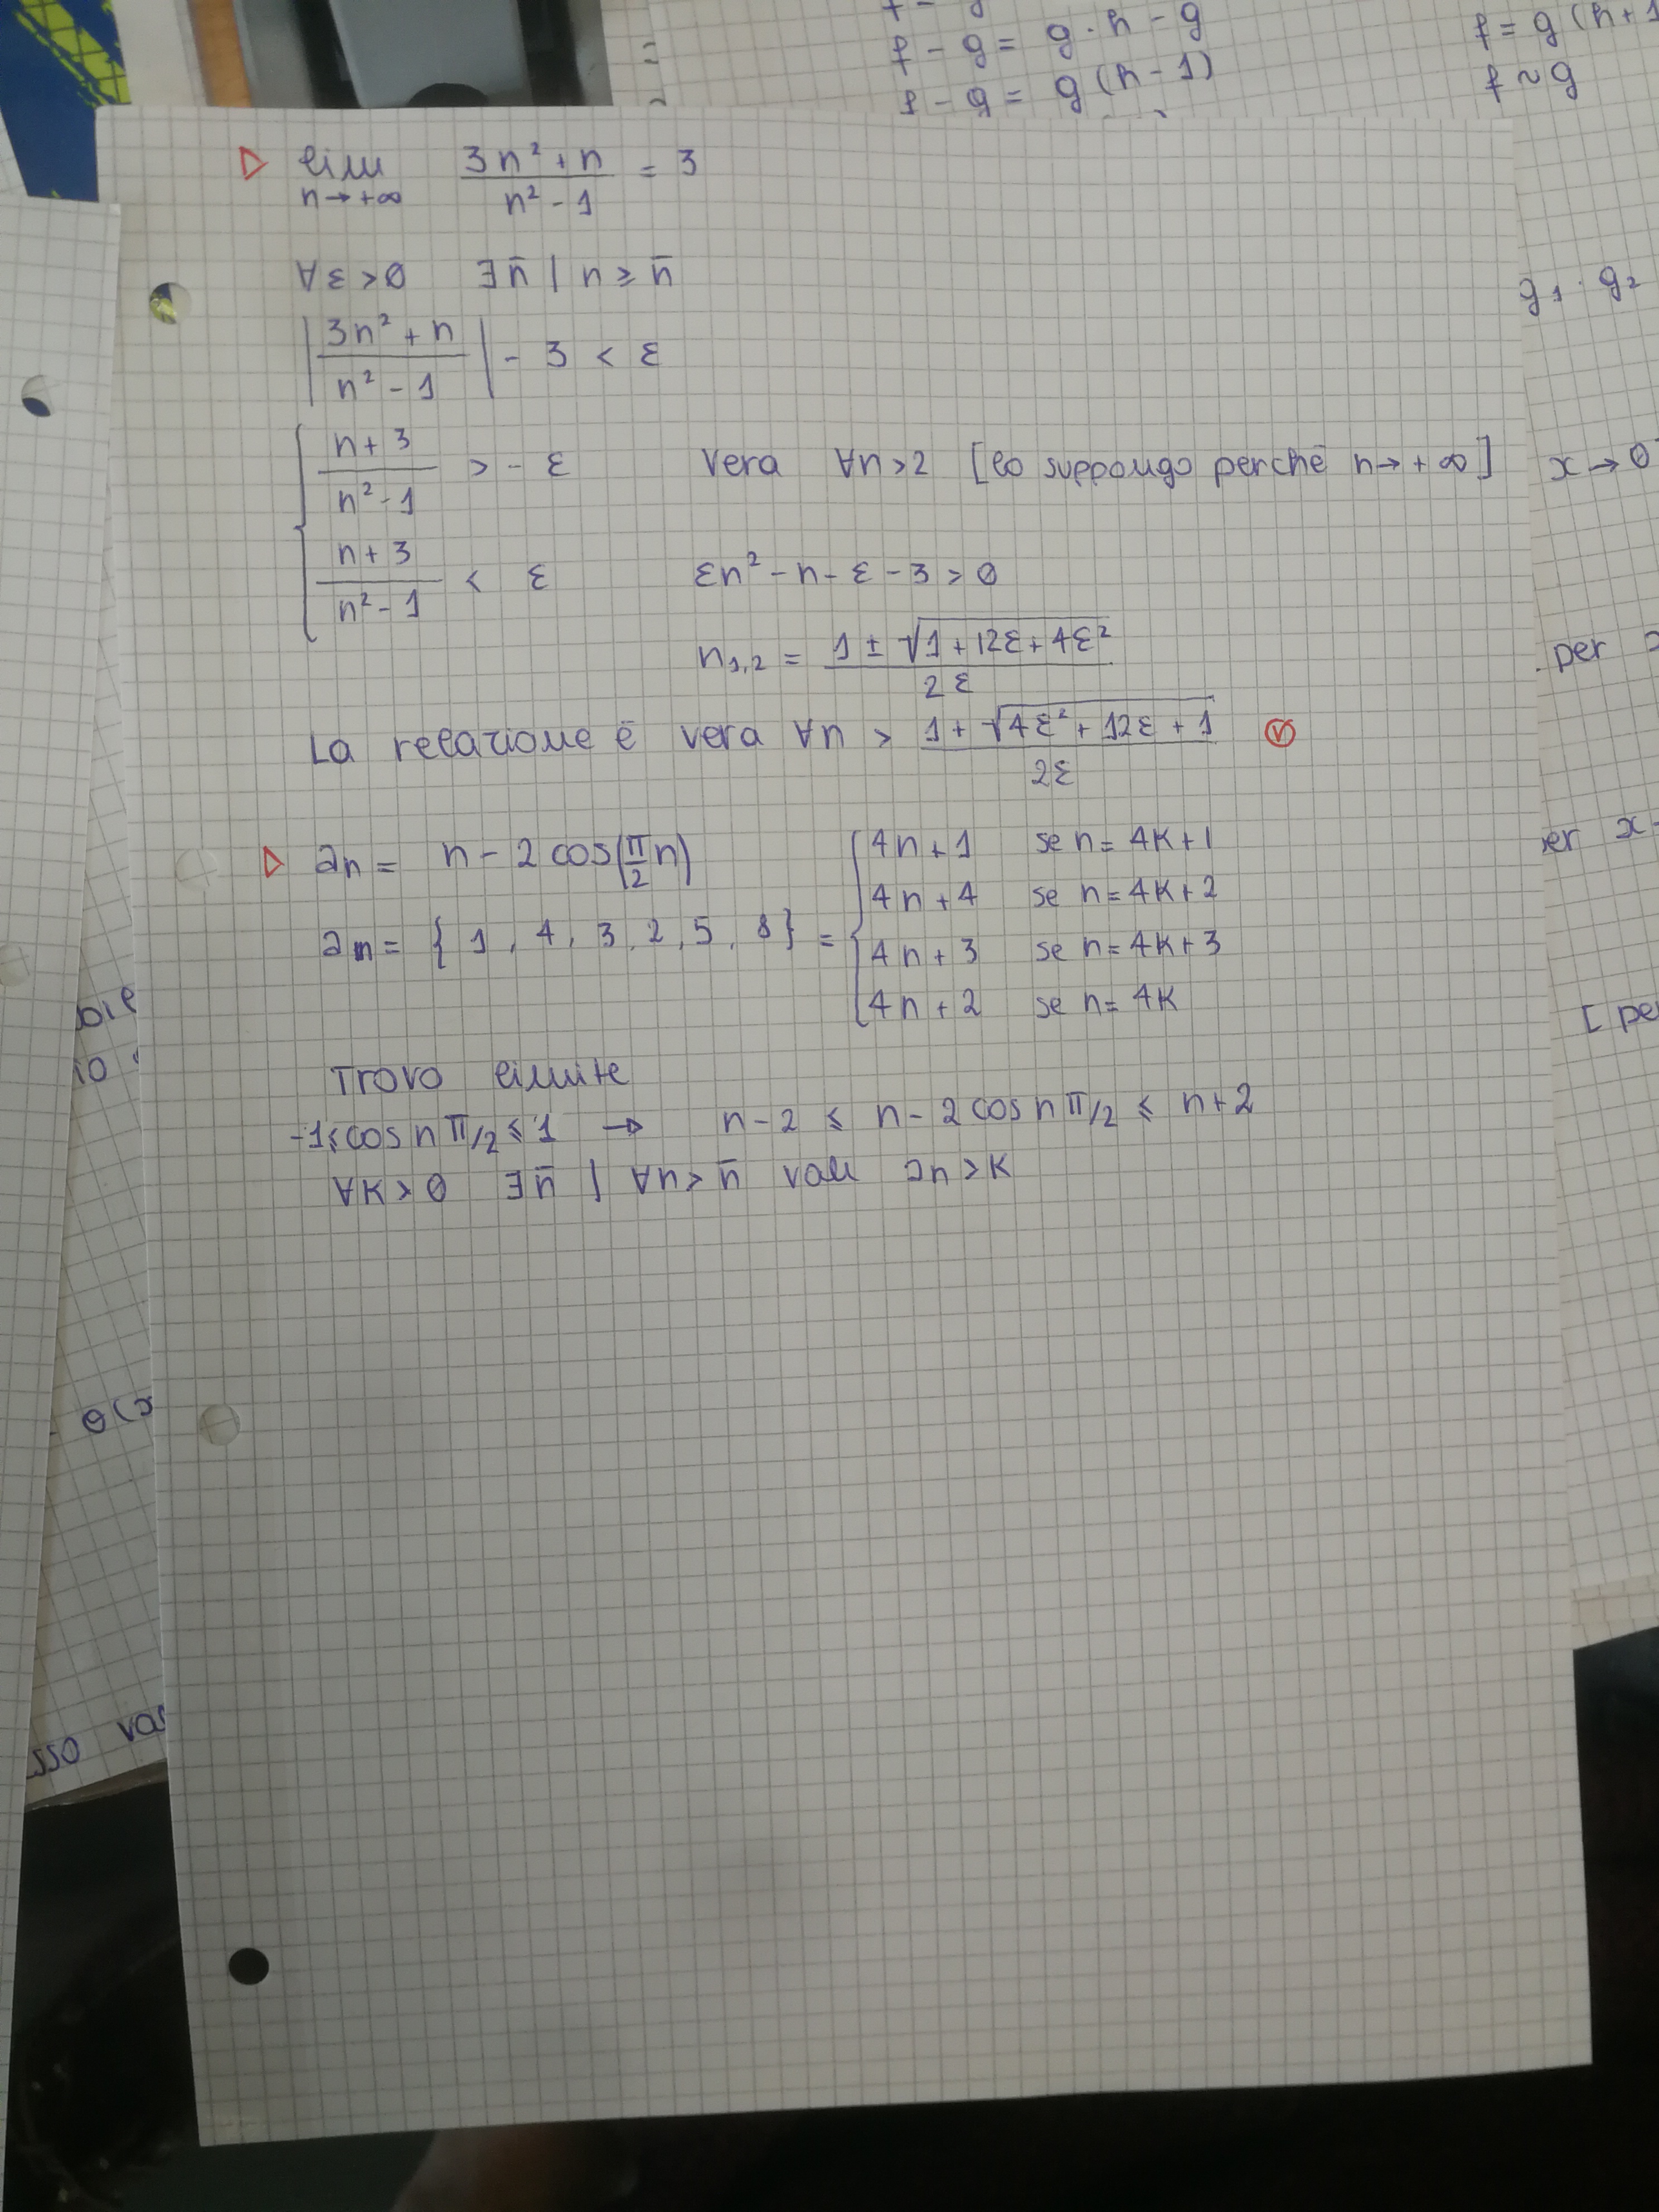 f - g = g · h - g
f - g = g (h - 1)
f = g (h + 1
f ~ g
▷ lim n→+∞ (3n² + n)/(n² - 1) = 3
∀ε > 0 ∃n̄ | n ≥ n̄
|(3n² + n)/(n² - 1)| - 3 < ε
{ (n + 3)/(n² - 1) > - ε Vera ∀n > 2 [lo suppongo perchè n → + ∞]
(n + 3)/(n² - 1) < ε εn² - n - ε - 3 > 0
n₁,₂ = (1 ± √(1 + 12ε + 4ε²))/(2ε)
La relazione è vera ∀n > (1 + √(4ε² + 12ε + 1))/(2ε) Ⓥ
▷ an = n - 2 cos(π/2 n)
an = { 1, 4, 3, 2, 5, 8 } =
{ 4n + 1 se n = 4K + 1
4n + 4 se n = 4K + 2
4n + 3 se n = 4K + 3
4n + 2 se n = 4K
Trovo limite
-1 ≤ cos n π/2 ≤ 1 → n - 2 ≤ n - 2 cos n π/2 ≤ n + 2
∀K > 0 ∃n̄ | ∀n > n̄ vale an > K
g₁ · g₂
x → 0
per
er x
[ pe
θ(x
sso va